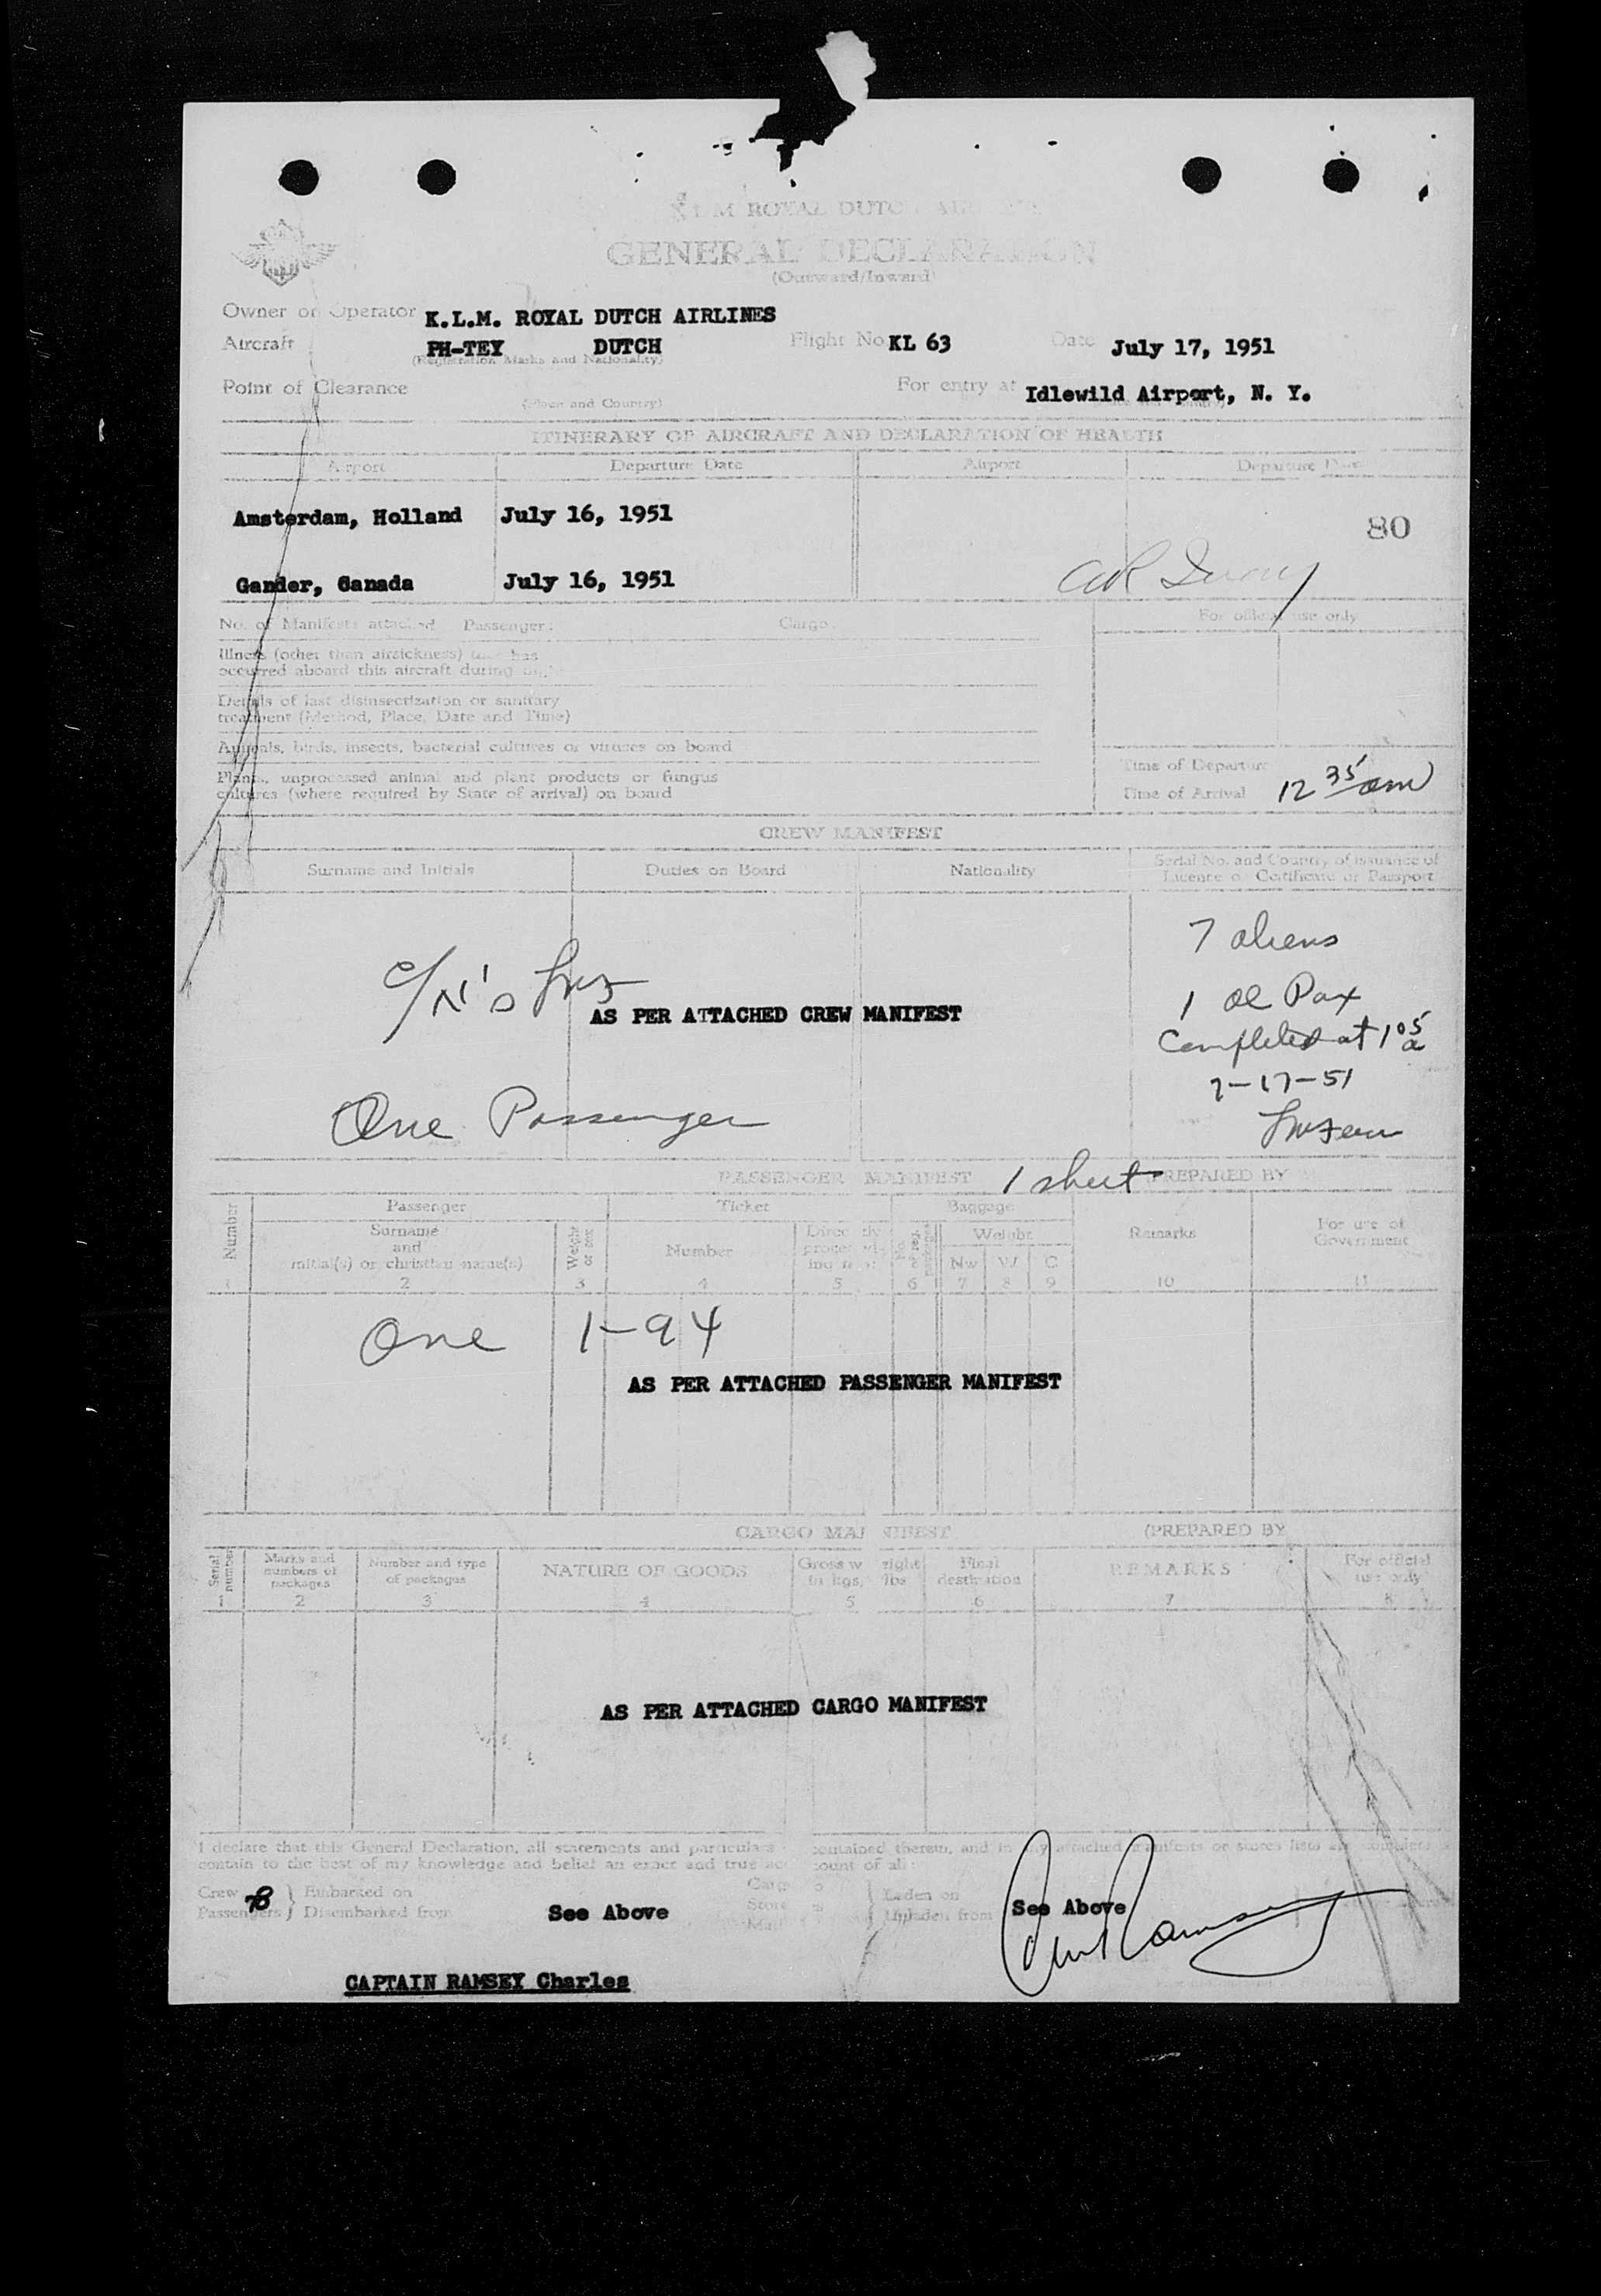 K L M ROYAL DUTCH
GENERAL DECLARATION
(Outward/Inward)
Owner or Operator K.L.M. ROYAL DUTCH AIRLINES
Aircraft PH-TEY DUTCH Flight No. KL 63 Date July 17, 1951
(Registration Marks and Nationality)
Point of Clearance For entry at Idlewild Airport, N. Y.
(Place and Country)
ITINERARY OF AIRCRAFT AND DECLARATION OF HEALTH
Airport Departure Date Airport Departure Date
Amsterdam, Holland July 16, 1951
80
Gander, Canada July 16, 1951
No. of Manifests attached Passenger: Cargo: For official use only
Illness (other than airsickness) that has
occurred aboard this aircraft during
Details of last disinsectization or sanitary
treatment (Method, Place, Date and Time)
Animals, birds, insects, bacterial cultures or viruses on board
Plants, unprocessed animal and plant products or fungus
cultures (where required by State of arrival) on board
Time of Departure
Time of Arrival 12 35 am
CREW MANIFEST
Surname and Initials Duties on Board Nationality Serial No. and Country of issuance of
Licence or Certificate or Passport
7 aliens
C/N's
1 Pax
AS PER ATTACHED CREW MANIFEST
Completed at 1 05 a
7-17-51
One Passenger
PASSENGER MANIFEST 1 sheet PREPARED BY
Number Passenger Ticket Baggage Remarks For use of
Government
Surname
and
initial(s) or christian name(s) Weight or sex Number Weight
Nw W C
1 2 3 4 5 6 7 8 9 10 11
One 1-94
AS PER ATTACHED PASSENGER MANIFEST
CARGO MANIFEST (PREPARED BY
Serial number Marks and
numbers of
packages Number and type
of packages NATURE OF GOODS Gross weight
in kgs, lbs Final
destination REMARKS For official
use only
1 2 3 4 5 6 7 8
AS PER ATTACHED CARGO MANIFEST
I declare that this General Declaration, all statements and particulars contained therein, and in any attached manifests or stores lists are complete
contain to the best of my knowledge and belief an exact and true account of all
Crew Embarked on Cargo Laden on
Passengers Disembarked from See Above Stores Unladen from See Above
Mail
CAPTAIN RAMSEY Charles